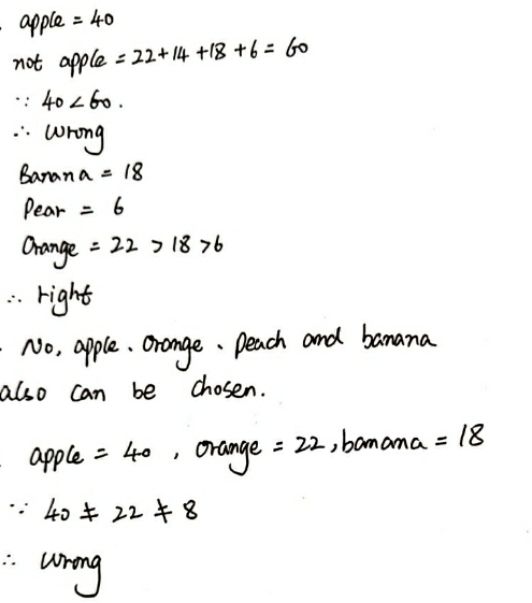 apple = 40
not apple = 22+14+18+6 = 60
∵ 40 < 60.
∴ wrong
Banana = 18
Pear = 6
Orange = 22 > 18 > 6
∴ right
No, apple、orange、peach and banana
also can be chosen.
apple = 40, orange = 22, banana = 18
∵ 40 ≠ 22 ≠ 8
∴ wrong